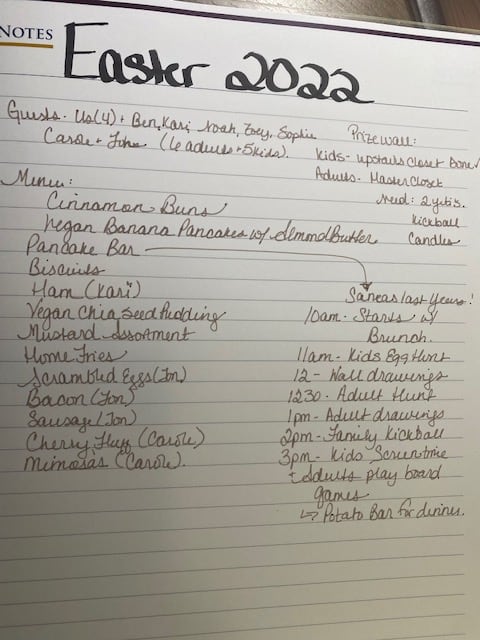 NOTES
Easter 2022
Guests - Us(4) + Ben, Kari, Noah, Zoey, Sophie
Carole + John (6 adults + 5 kids).
Prize wall:
Kids - upstairs closet
Adults - Master Closet
Need: 2 yetis.
Kickball
Candles
Menu:
Cinnamon Buns
Vegan Banana Pancakes w/ Almond Butter
Pancake Bar
Biscuits
Ham (Kari)
Vegan Chia Seed Pudding
Mustard Assortment
Home Fries
Scrambled Eggs (Jon)
Bacon (Jon)
Sausage (Jon)
Cherry Fluff (Carole)
Mimosas (Carole).
Same as last years!
10am - Starts w/
Brunch.
11am - Kids Egg Hunt
12 - Wall drawings
1230 - Adult Hunt
1pm - Adult drawings
2pm - Family Kickball
3pm - Kids Screentime
+ Adults play board
games
↳ Potato Bar for dinner.